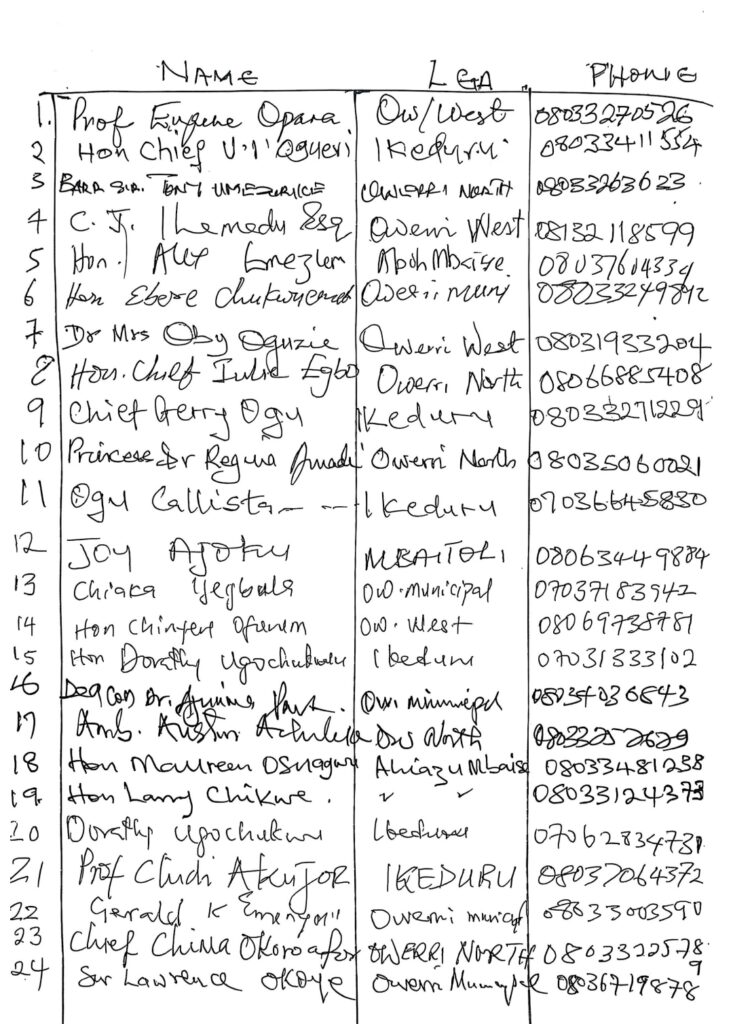 NAME LGA PHONE
1. Prof Eugene Opara Ow/West 08033270526
2 Hon Chief U.I. Ogueri Ikeduru 08033411554
3 BARR SIR. TONY UMEZURIKE OWERRI NORTH 08033263623
4 C. J. Ihemedu Esq Owerri West 08132118599
5 Hon. Alex Aboh Mbaise 08037604334
6 Hon Ebere Owerri muni 08033249842
7 Dr Mrs Oby Oguzie Owerri West 08031933204
8 Hon. Chief Julie Egbo Owerri North 08066885408
9 Chief Gerry Ogu Ikeduru 08033271229
10 Princess Dr Regina Amadi Owerri North 08035060021
11 Ogu Callista Ikeduru 07036645830
12 JOY AJOKU MBAITOLI 08063449884
13 Chiaka Ow. municipal 07037183942
14 Hon Chinyere Ow. West 08069738781
15 Hon Dorathy Ugochukwu Ikeduru 07031333102
16 Deacon Dr. Ow. municipal 08034036843
17 Amb. Austin Ow North 08033252629
18 Hon Maureen Osuagwu Ahiazu Mbaise 08033481238
19. Hon Larry Chikwe. " " 08033124373
20 Dorathy Ugochukwu Ikeduru 07062834731
21 Prof Chidi AKUJOR IKEDURU 08037064372
22 Gerald K Owerri municipal 08033003590
23 Chief China Okoroafor OWERRI NORTH 08033225789
24 Sir Lawrence OKOYE Owerri Municipal 08036719878